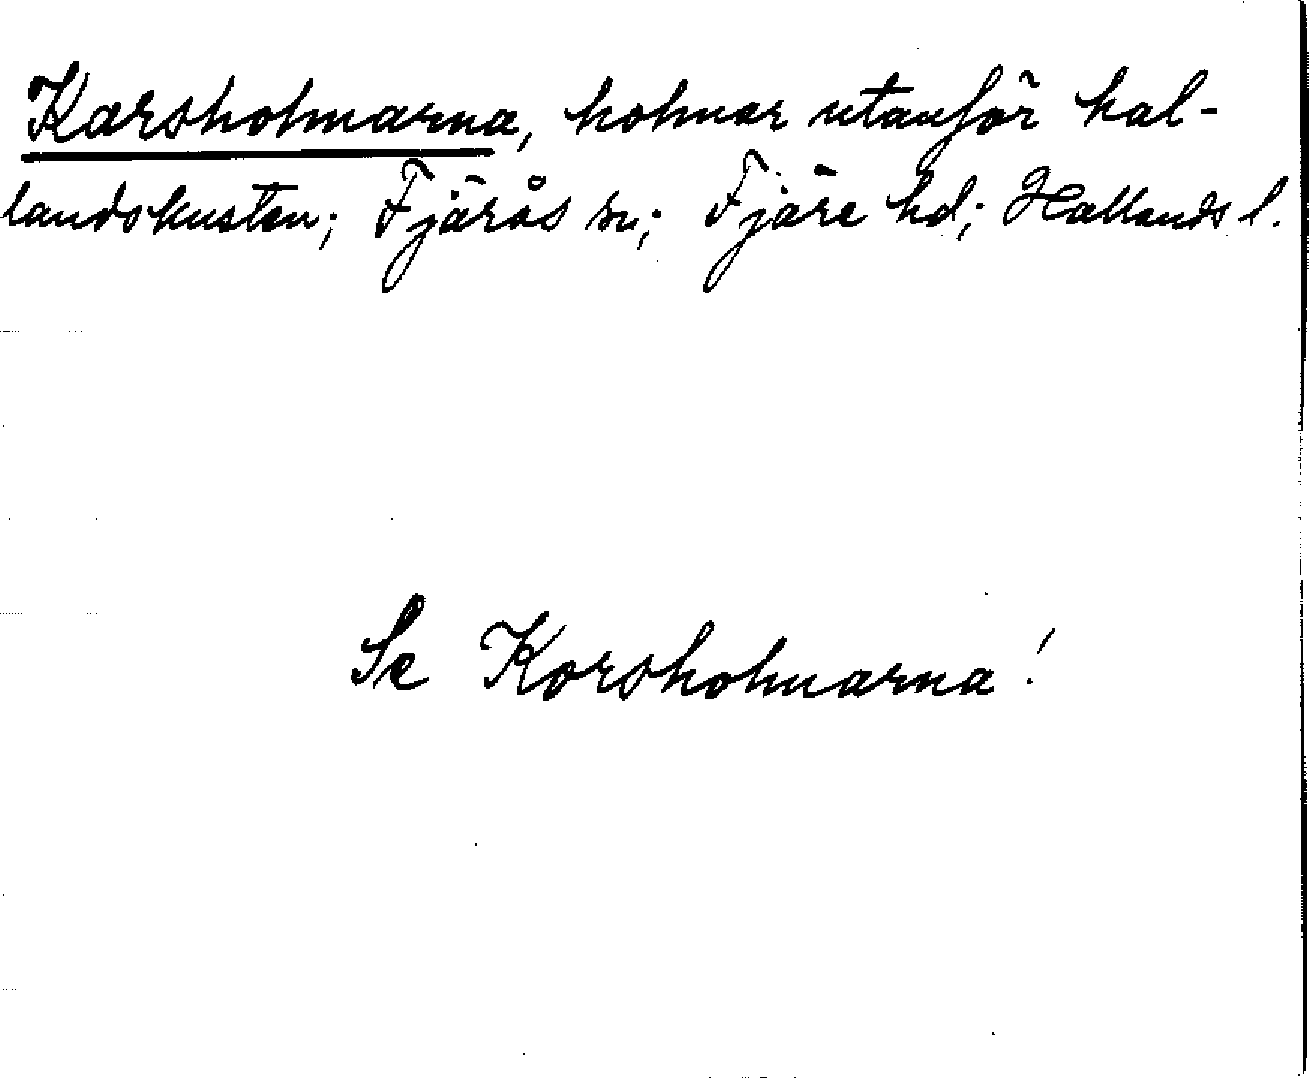 Karsholmarna, holmar utanför hal-
landskusten; Fjärås sn; Fjäre hd; Hallands l.
Se Korsholmarna!